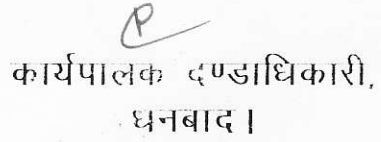 P
कार्यपालक दण्डाधिकारी,
धनबाद।